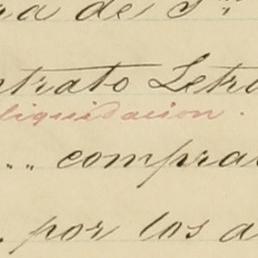 ra de Sr.
ntrato Letra
liquidacion.
... compra
. por los a